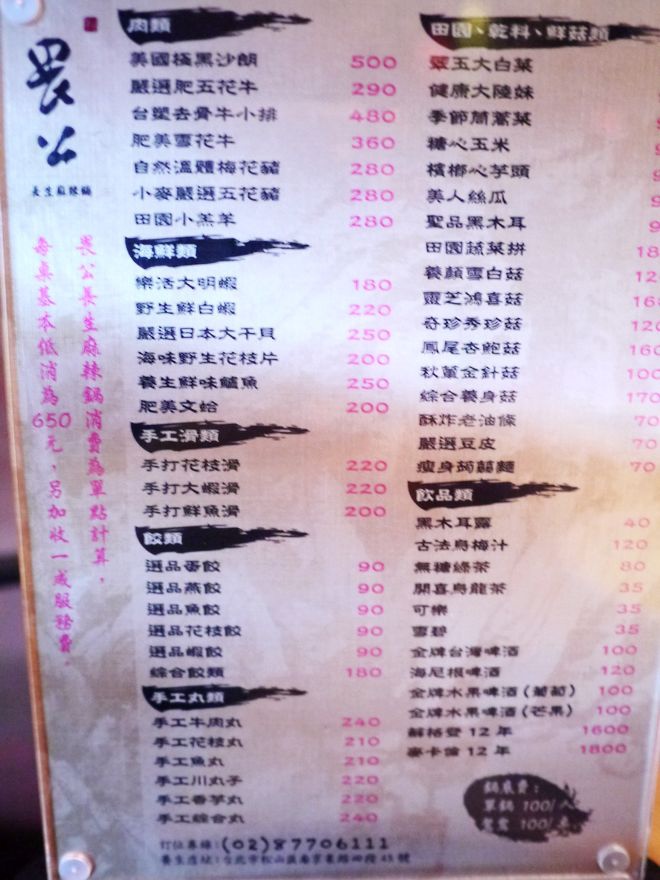 畏公
長生麻辣鍋
畏公長生麻辣鍋消費為單點計算，
每桌基本低消為650元，另加收一成服務費。
肉類
美國極黑沙朗 500
嚴選肥五花牛 290
台塑去骨牛小排 480
肥美雪花牛 360
自然溫體梅花豬 280
小麥嚴選五花豬 280
田園小羔羊 280
海鮮類
樂活大明蝦 180
野生鮮白蝦 220
嚴選日本大干貝 250
海味野生花枝片 200
養生鮮味鱸魚 250
肥美文蛤 200
手工滑類
手打花枝滑 220
手打大蝦滑 220
手打鮮魚滑 200
餃類
選品蛋餃 90
選品燕餃 90
選品魚餃 90
選品花枝餃 90
選品蝦餃 90
綜合餃類 180
手工丸類
手工牛肉丸 240
手工花枝丸 210
手工魚丸 210
手工川丸子 220
手工香芋丸 220
手工綜合丸 240
田園、乾料、鮮菇類
翠玉大白菜
健康大陸妹
季節茼蒿菜
糖心玉米
檳榔心芋頭
美人絲瓜
聖品黑木耳
田園蔬菜拼
養顏雪白菇
靈芝鴻喜菇
奇珍秀珍菇
鳳尾杏鮑菇 160
秋葉金針菇 100
綜合養身菇 170
酥炸老油條 70
嚴選豆皮 70
瘦身蒟蒻麵 70
飲品類
黑木耳露 40
古法烏梅汁 120
無糖綠茶 80
開喜烏龍茶 35
可樂 35
雪碧 35
金牌台灣啤酒 100
海尼根啤酒 120
金牌水果啤酒(葡萄) 100
金牌水果啤酒(芒果) 100
蘇格登12年 1600
麥卡倫12年 1800
鍋底費：
單鍋 100/人
鴛鴦 100/人
訂位專線：(02)87706111
養生店址：台北市松山區南京東路四段45號